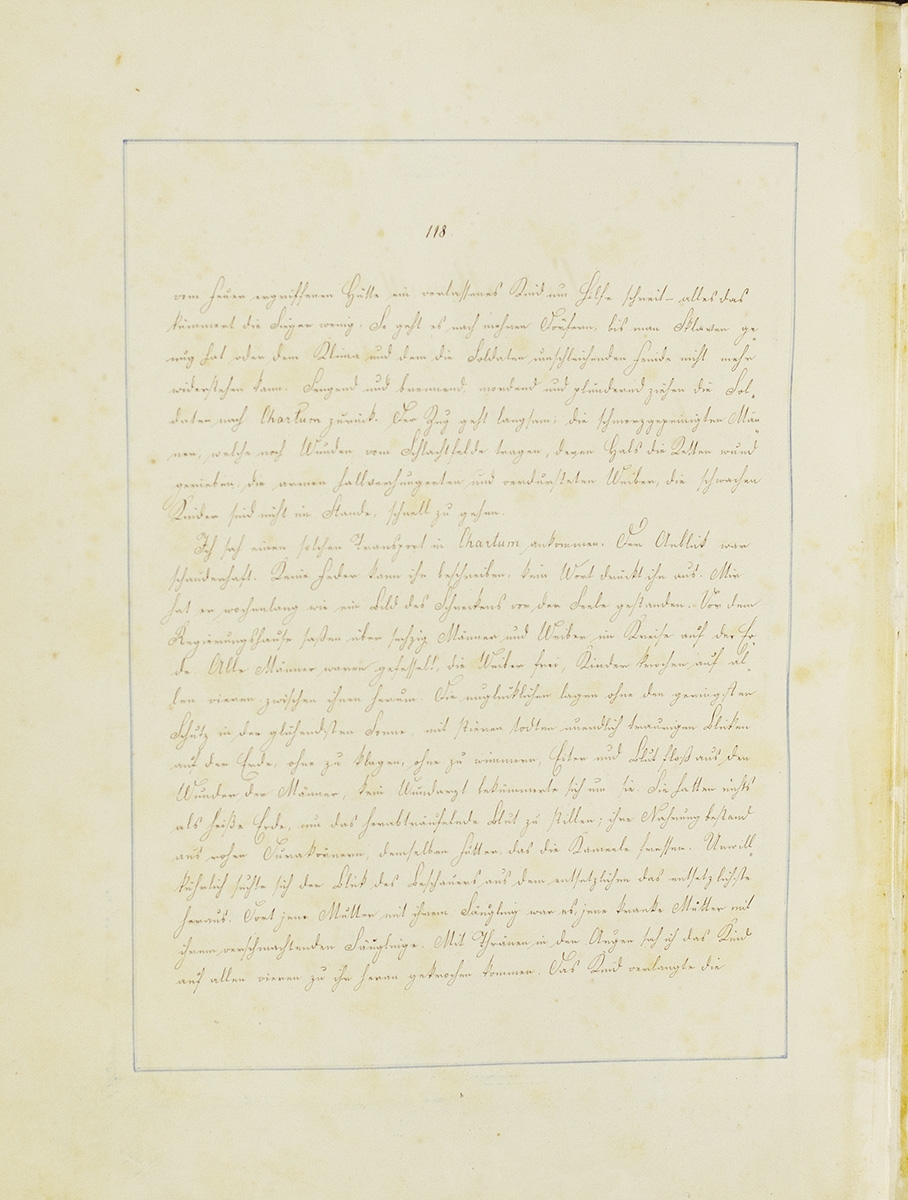 118
vom Feuer ergriffenen Hütte ein verlassenes Kind um Hülfe schreit – alles das
kümmert die Sieger wenig. So geht es nach mehren Dörfern, bis man Sklaven ge-
nug hat oder dem Klima und dem die Soldaten umschleichenden Feinde nicht mehr
widerstehen kann. Sengend und brennend, mordend und plündernd ziehen die Sol-
daten nach Chartum zurück. Der Zug geht langsam; die schmerzgepeinigten Män-
ner, welche noch Wunden vom Schlachtfelde tragen, deren Hals die Ketten wund
gerieben, die armen halbverhungerten und verdursteten Weiber, die schwachen
Kinder sind nicht im Stande, schnell zu gehen.
Ich sah einen solchen Transport in Chartum ankommen. Der Anblick war
schauderhaft. Keine Feder kann ihn beschreiben, kein Wort drückt ihn aus. Mir
hat er wochenlang wie ein Bild des Schreckens vor der Seele gestanden. Vor dem
Regierungshause saßen über sechzig Männer und Weiber im Kreise auf der Er-
de. Alle Männer waren gefesselt, die Weiber frei, Kinder krochen auf al-
len vieren zwischen ihnen herum. Die unglücklichen lagen ohne den geringsten
Schutz in der glühendsten Sonne mit stieren todten unendlich traurigen Blicken
auf der Erde, ohne zu klagen, ohne zu wimmern, Eiter und Blut floß aus den
Wunden der Männer, kein Wundarzt bekümmerte sich um sie. Sie hatten nichts
als heiße Erde, um das herabträufelnde Blut zu stillen; ihre Nahrung bestand
aus rohen Durakörnern, demselben Futter, das die Kameele fressen. Unwill-
kührlich suchte sich der Blick des Beschauers aus dem entsetzlichen das entsetzlichste
heraus. Dort jene Mutter mit ihrem Säugling war es, jene kranke Mutter mit
ihrem verschmachtenden Säuglinge. Mit Thränen in den Augen sah ich das Kind
auf allen vieren zu ihr heran gekrochen kommen. Das Kind verlangte die